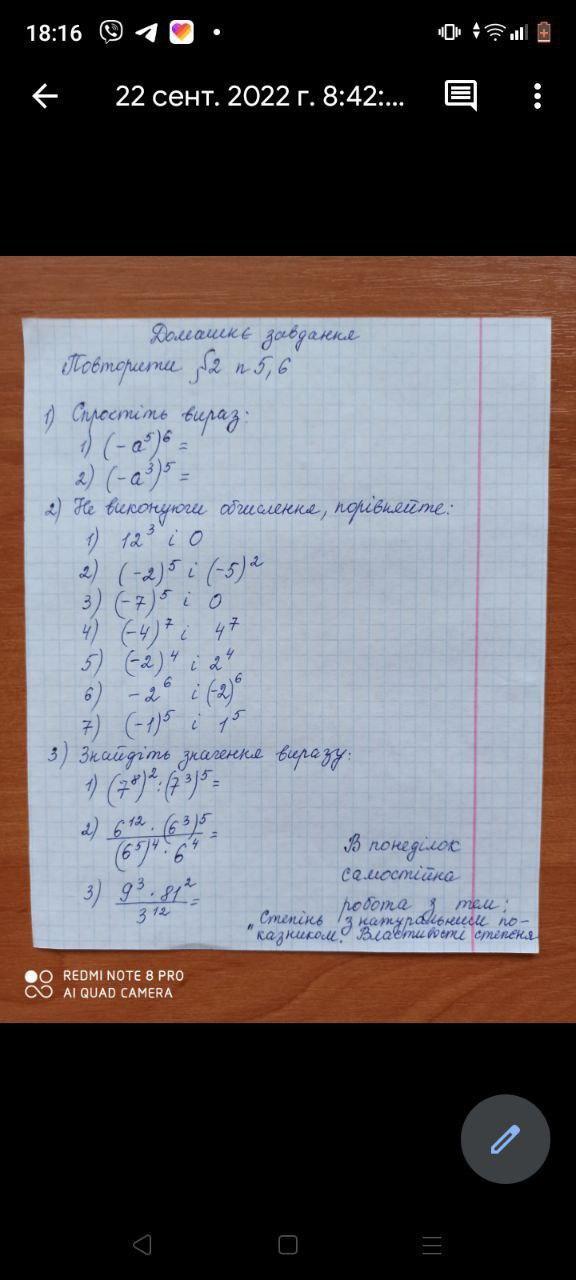 18:16
22 сент. 2022 г. 8:42:...
Домашнє завдання
Повторити §2 п 5,6
1) Спростіть вираз:
1) (-a⁵)⁶ =
2) (-a³)⁵ =
2) Не виконуючи обчислення, порівняйте:
1) 12³ і 0
2) (-2)⁵ і (-5)²
3) (-7)⁵ і 0
4) (-4)⁷ і 4⁷
5) (-2)⁴ і 2⁴
6) -2⁶ і (-2)⁶
7) (-1)⁵ і 1⁵
3) Знайдіть значення виразу:
1) (7⁸)² : (7³)⁵ =
2) 6¹² · (6³)⁵ =
(6⁵)⁴ · 6⁴
3) 9³ · 81² =
3¹²
В понеділок
самостійна
робота з тем:
"Степінь з натуральним по-
казником. Властивості степеня
REDMI NOTE 8 PRO
AI QUAD CAMERA